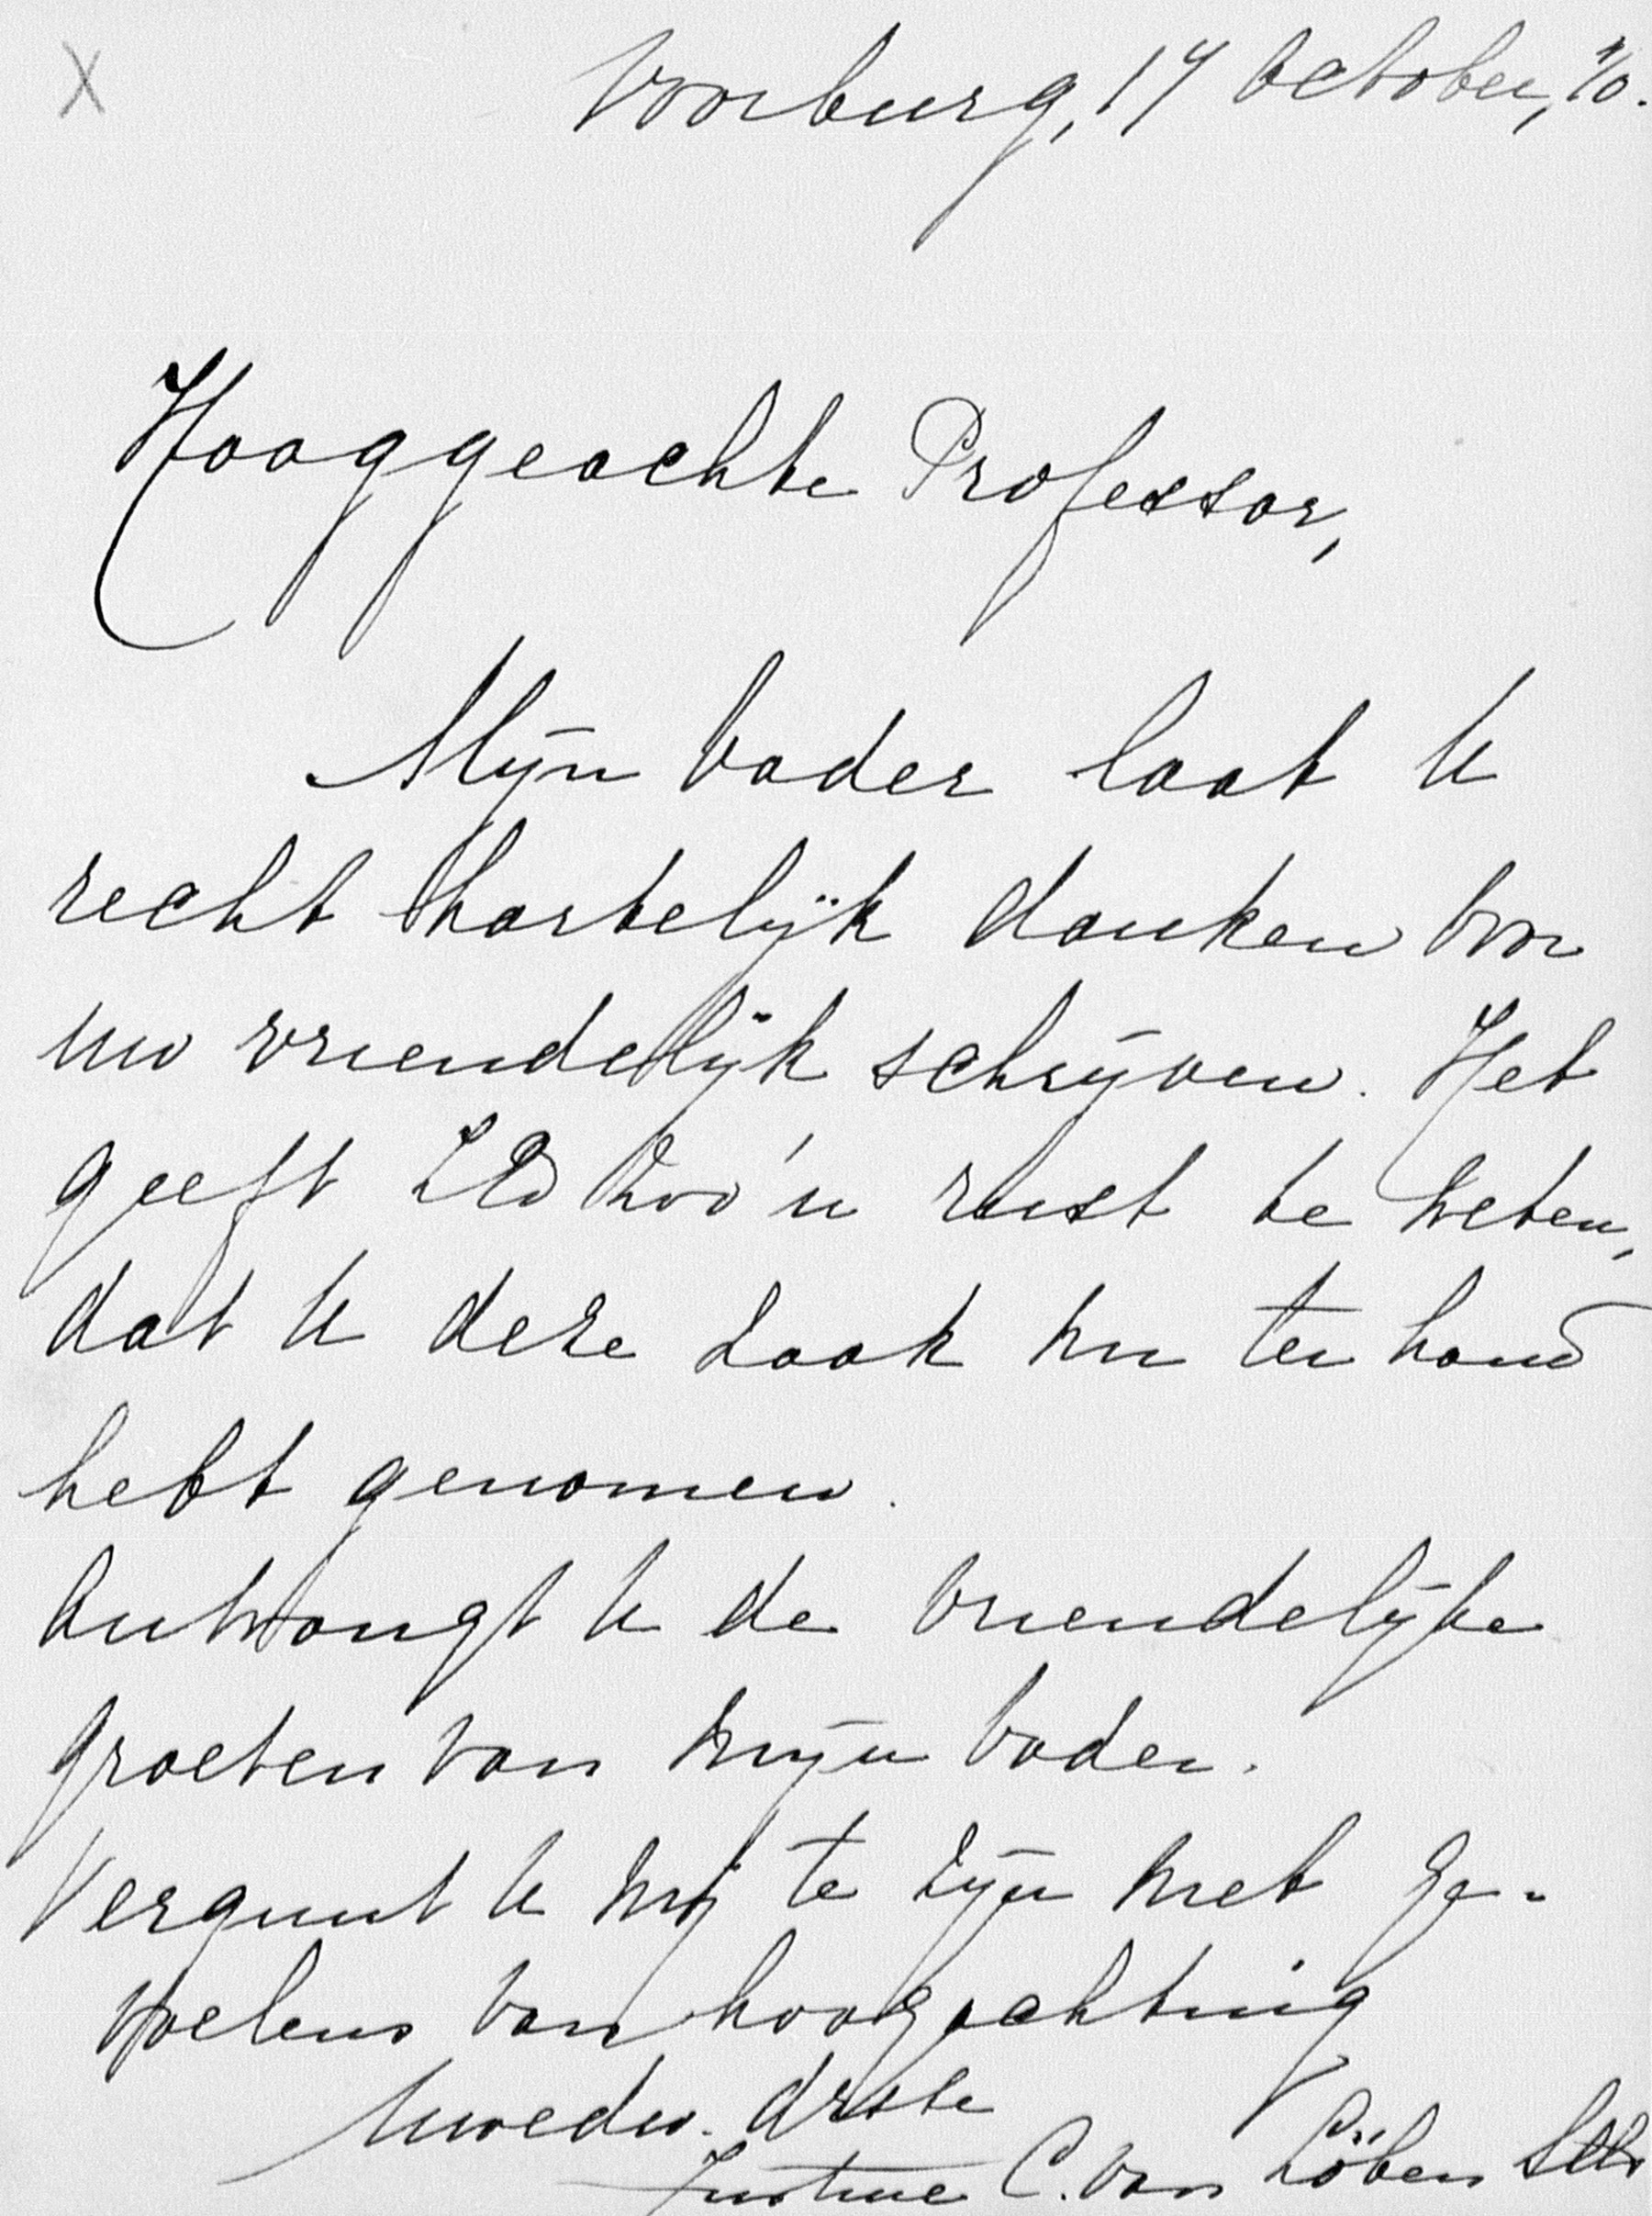 X
Voorburg, 17 October, '10.
Hooggeachte Professor,
Mijn vader laat U
recht hartelijk danken voor
uw vriendelijk schrijven. Het
geeft ZEd zoo'n rust te weten,
dat U deze zaak nu ter hand
hebt genomen.
Ontvangt U de vriendelijke
groeten van mijn vader.
Vergunt U mij te zijn met ge-
voelens van hoogachting
Uwedw. drste
Justine C. van Löben Sels